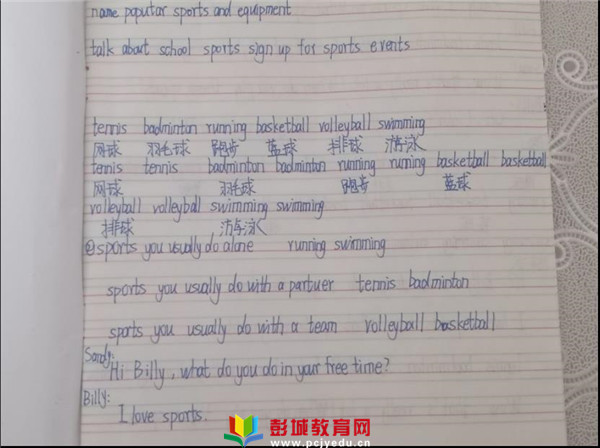 name popular sports and equipment
talk about school sports sign up for sports events
tennis badminton running basketball volleyball swimming
网球 羽毛球 跑步 蓝球 排球 游泳
tennis tennis badminton badminton running runing basketball basketball
网球 羽毛球 跑步 蓝球
volleyball volleyball swimming swimming
排球 游泳
@sports you usually do alone running swimming
sports you usually do with a partuer tennis badminton
sports you usually do with a team volleyball basketball
Sandy:
Hi Billy, what do you do in your free time?
Billy:
I love sports.
彭城教育网
www.pcjyedu.cn